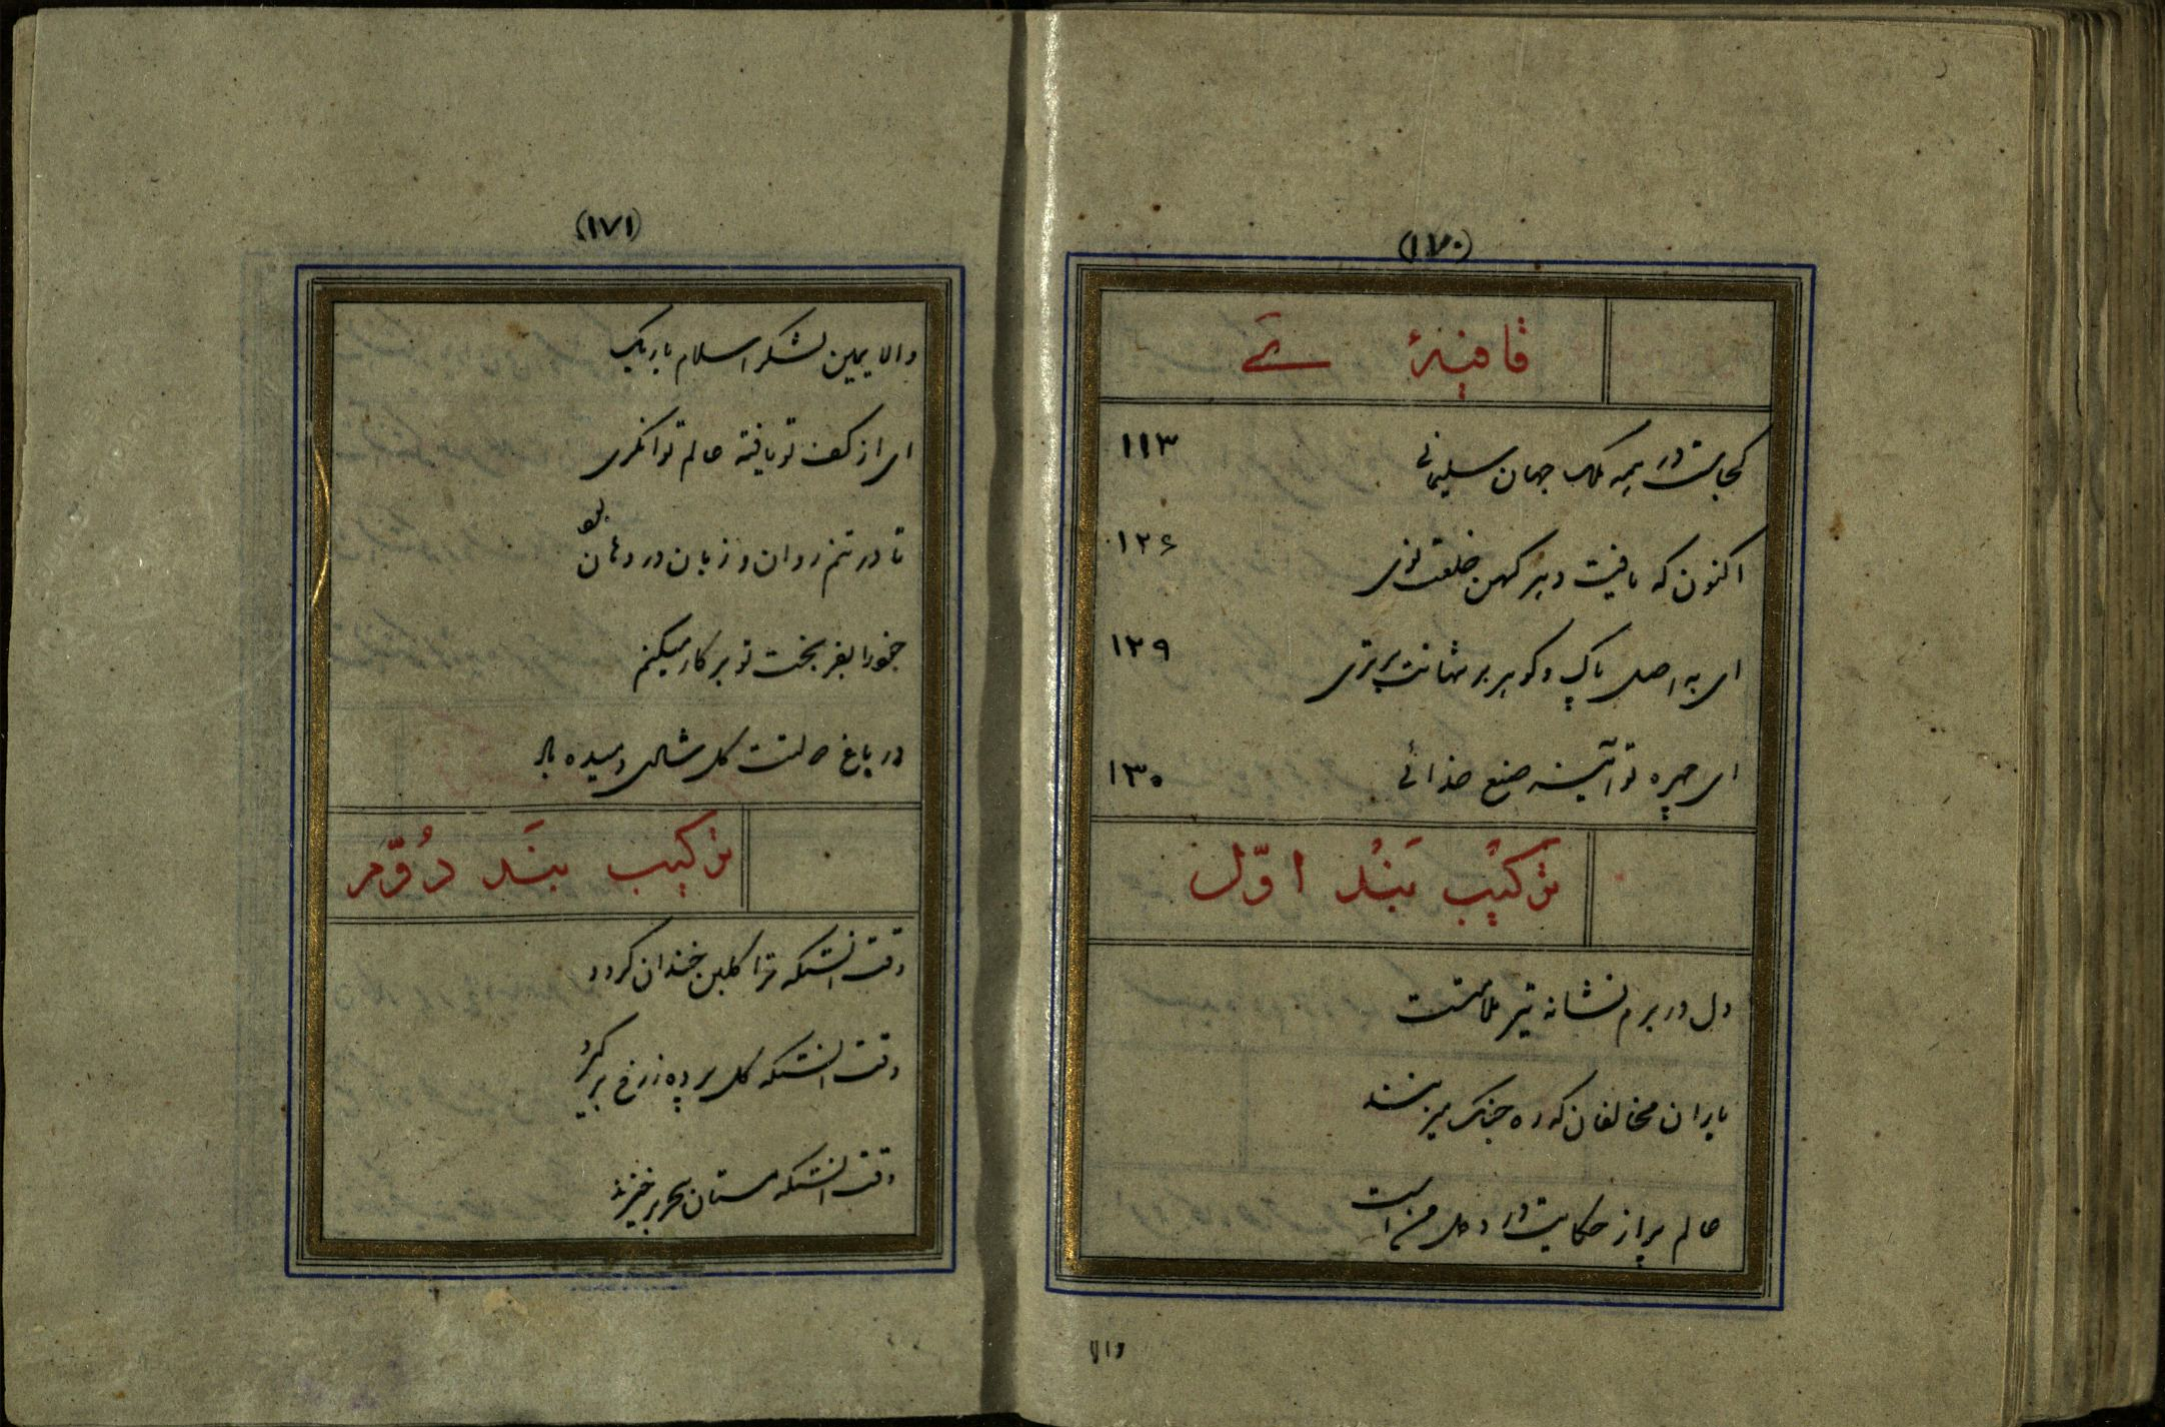 (۱۷۰)
قافیهٔ ی
کجاست در همه ملک جهان سلیمانی ۱۱۳
اکنون که یافت دهر کهن خلعت نوی ۱۲۶
ای به اصل پاک و گوهر بر شهانت برتری ۱۲۹
ای چهره تو آینه صنع خدائی ۱۳۰
ترکیب بند اوّل
دل در برم نشانه تیر ملامتست
یاران مخالفان که ره جنگ میزنند
عالم پر از حکایت درد دل من است
والا
(۱۷۱)
والا یمین لشکر اسلام باربک
ای از کف تو یافته عالم توانگری
تا در تنم روان و زبان در دهان بود
خود را بفر بخت تو بر کار میکنم
در باغ دولتت گل شادی دمیده باد
ترکیب بند دُوّم
وقت آنستکه ترا گلبن خندان گردد
وقت آنستکه گل پرده ز رخ برگیرد
وقت آنستکه مستان سحر برخیزند